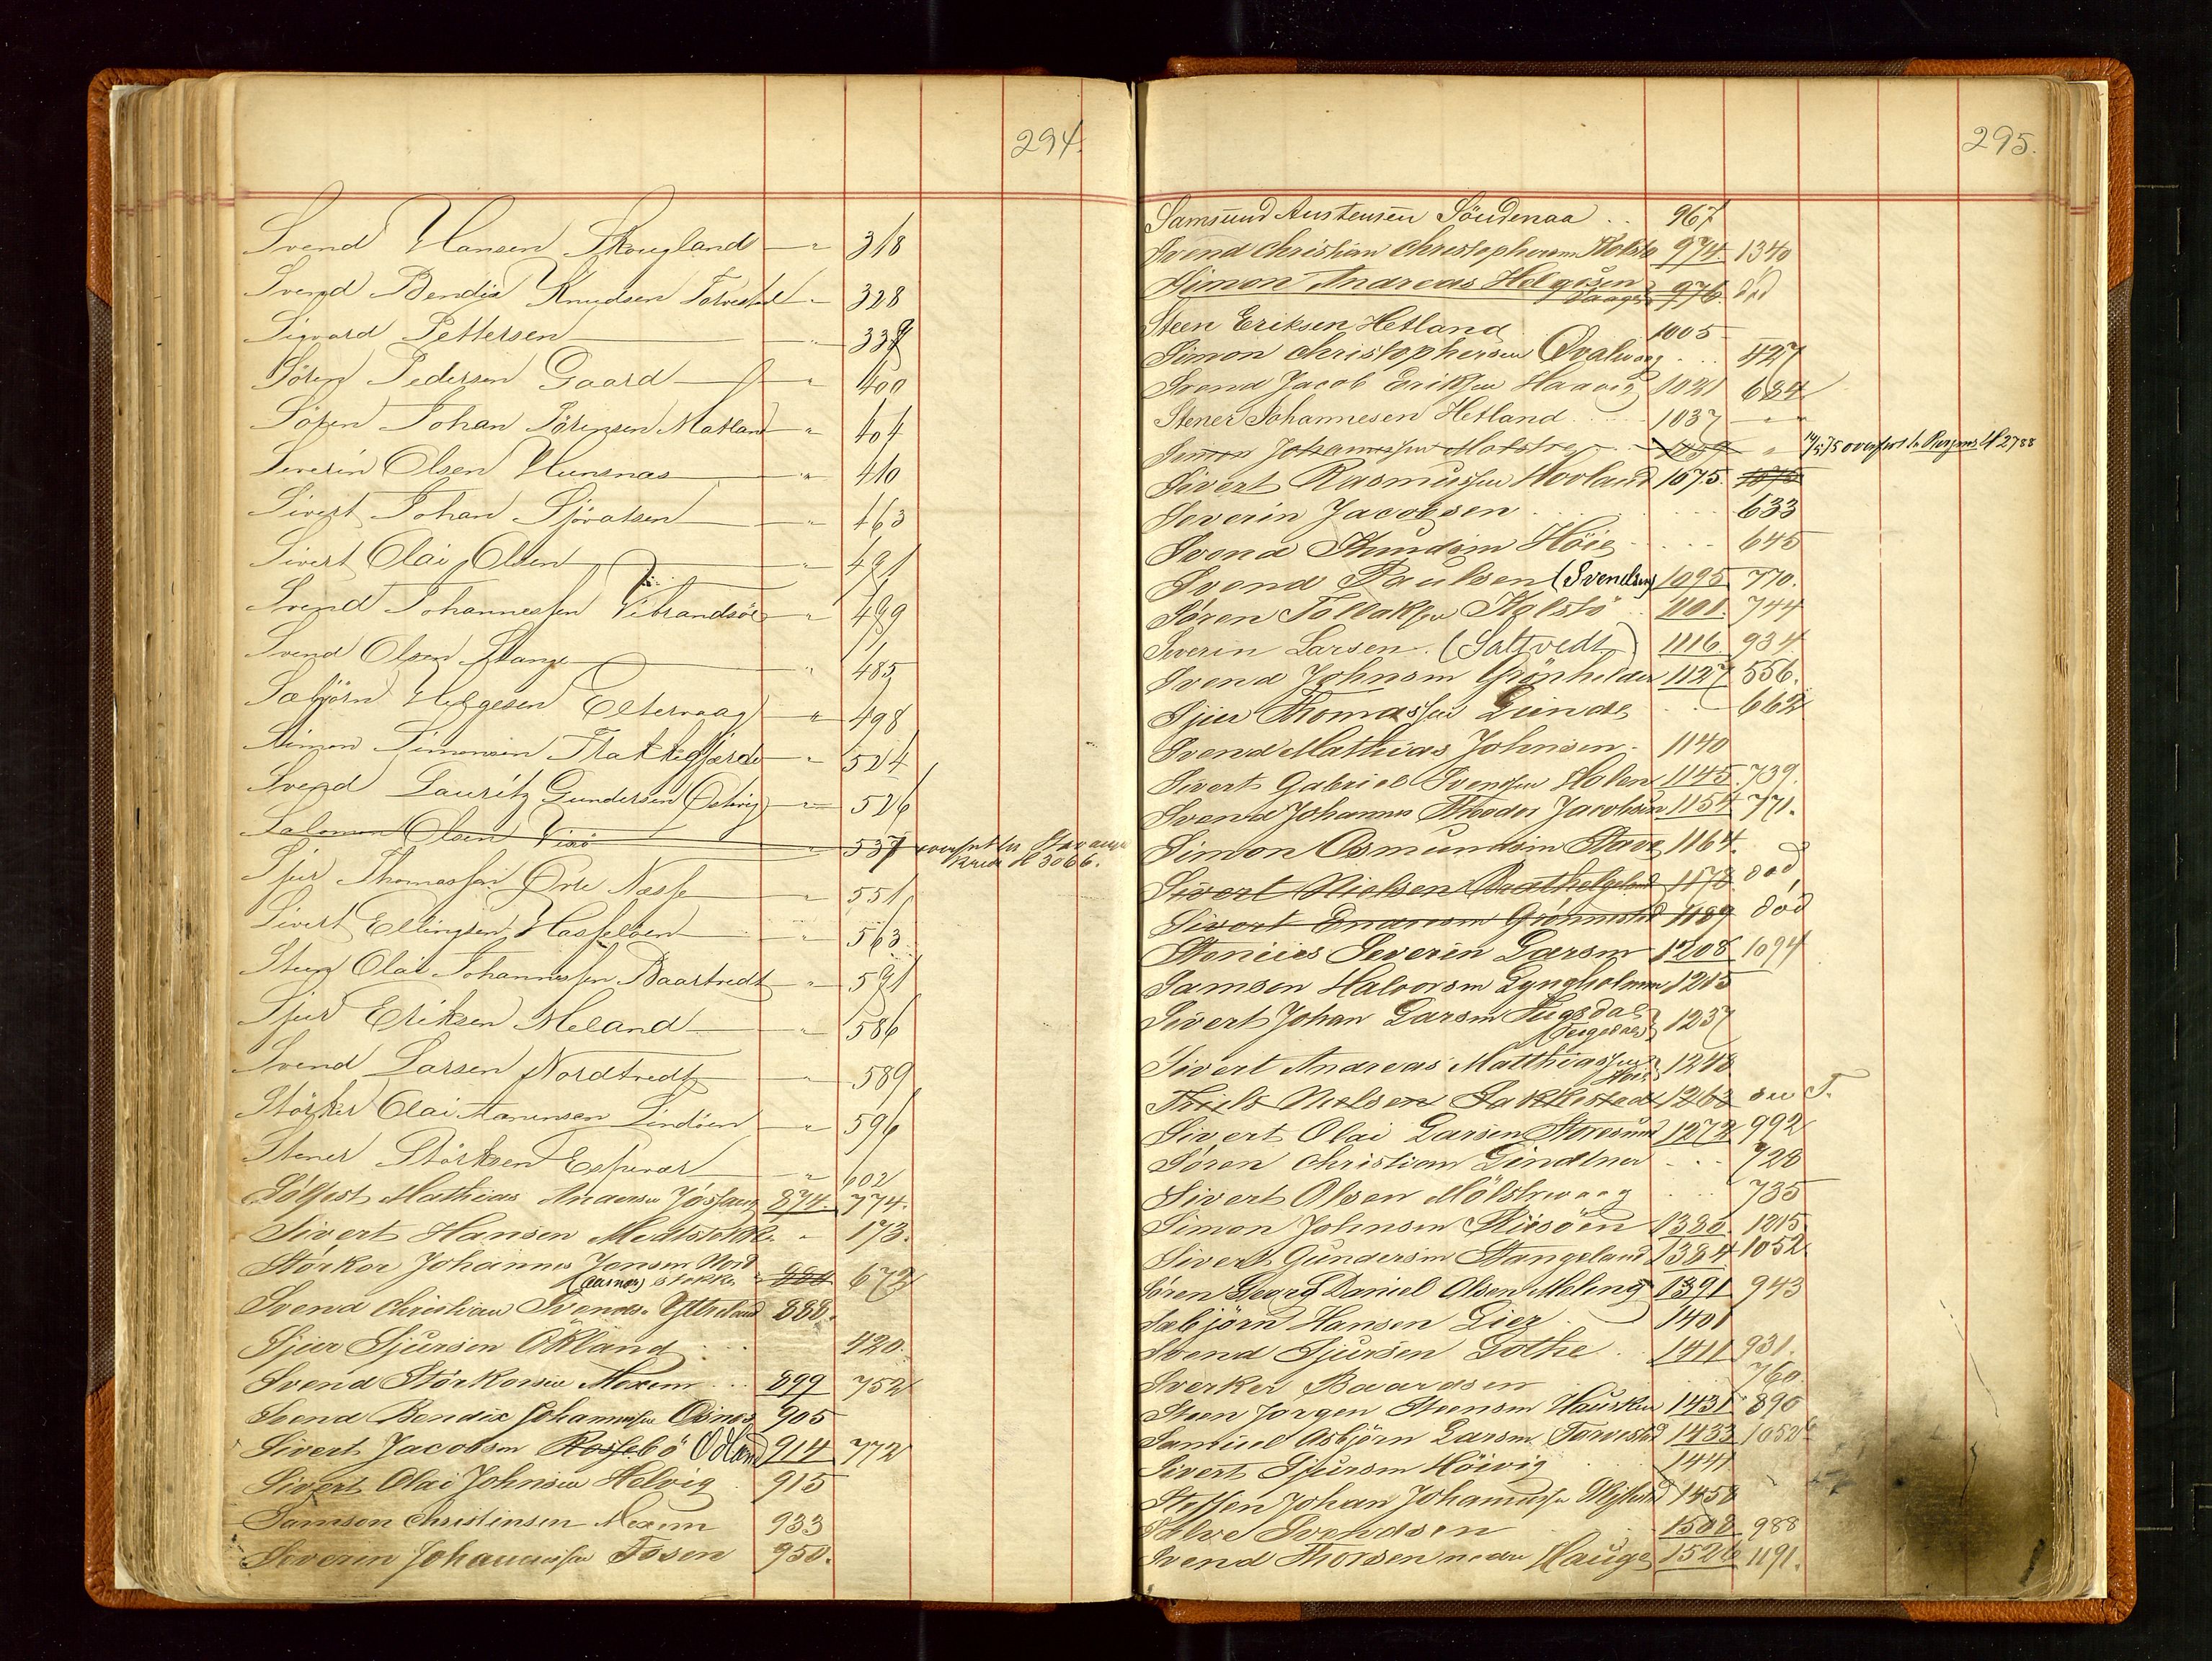 294.
Svend Hansen Skougland — " 318
Svend Bendix Knudsen Torvestad " 328
Sigvard Pettersen — " 338
Sören Pedersen Gaard — " 400
Sören Johan Sörensen Matland " 404
Severin Olsen Hunsnæs — " 410
Sivert Johan Sjövatsen — " 463
Sivert Olai Olsen — " 491
Svend Johannessen Vibrandsöe " 499
Svend Olsen Stange — " 485
Sæbjörn Helgesen Eltervaag " 498
Simon Simonsen — " 524
Svend Lauritz Gundersen — " 526
Salomon Olsen Visö — " 537
Kreds No 3066.
Sjur Thomassen Övre Næsse — " 551
Sivert Ellingsen Hasseloen — " 563
Steen Olai Johannessen Baastvedt " 591
Sjur Eriksen Meland — " 586
Svend Larsen Nordtvedt — " 589
Störker Olai Lindöen " 596
Stener Störksen Espevær — " 602
Sölfest Mathias Andersen Jösfang 874. 774.
Sivert Hansen " 173.
Störker Johannes Jensen Nord
stokke 884 672
Svend Christian Svends. Ytreland 888.
Sjur Sjursen Ökland . . . 420.
Svend Störkorsen Moxem . . 899 752
Svend Bendix Johannessen Osnes 905
Sivert Jacobsen Rossebö Odland 914 772
Sivert Olai Johnsen Helvig . 915
Samson Christinsen 933
Severin Johannessen Fosen 950.
295.
Samsund Austensen Söndenaa . . 967
Svend Christian Christophersen Kolstö 974 1340
Simon Andreas Helgesen
Vaage 976. död
Steen Eriksen Hetland 1005
Simon Christophersen Qvalvaag . . . 427
Svend Jacob Eriksen Haavig 1021 634
Stener Johannesen Hetland 1037 —"—
Simon Johannessen " 14/5 75 overfört No 2788
Sivert Rasmussen Hovland 1075.
Severin Jacobsen . . . 633
Svend Knudsen Höie . . . 645
Svend Paulsen (Svendsen) 1095 770.
Sören Tollaksen Kolstö . . 1101. 744
Severin Larsen. (Saltvedt) 1116. 934.
Svend Johnsen Grönhelder 1127 556.
Sjur Thomassen Linde . . 662
Svend Mathias Johnsen . 1140
Sivert Gabriel Svendsen Holen 1145. 739.
Svend Johannes Theodor Jacobsen 1154 771.
Simon Osmundsen Stave 1164.
Sivert Nielsen 1178 död
Sivert Enarsen Grönnestad 1189 död
Stenius Severin Larsen 1208 1094
Samson Halvorsen Lyngholmen 1215
Sivert Johan Larsen Fugsdal
(Tengesdal) 1237
Sivert Andreas Matthiassen
Höie 1248
Nielsen Sakkestad 1263 see T.
Sivert Olai Larsen Storesund 1272 992
Sören Christian Lindtner . . . 728
Sivert Olsen Mölstrevaag . . . 735
Simon Johnsen Risöen 1380. 1215
Sivert Gundersen Stangeland 1384 1052
Sören Georg Daniel Olsen Meling 1391 943
Sæbjörn Hansen Lier . 1401
Svend Sjursen Gothe . . 1411 931.
Sverker Baardsen . 760.
Steen Jörgen Steensen Hausken 1431 890
Samuel Asbjörn Larsen Torvestad 1433 1052b
Sivert Sjursen Höivig . 1441
Steffen Johan Johannessen 1458
Sælve Svendsen . 1508 988
Svend Thorsen nedre Hauge 1526 1191.